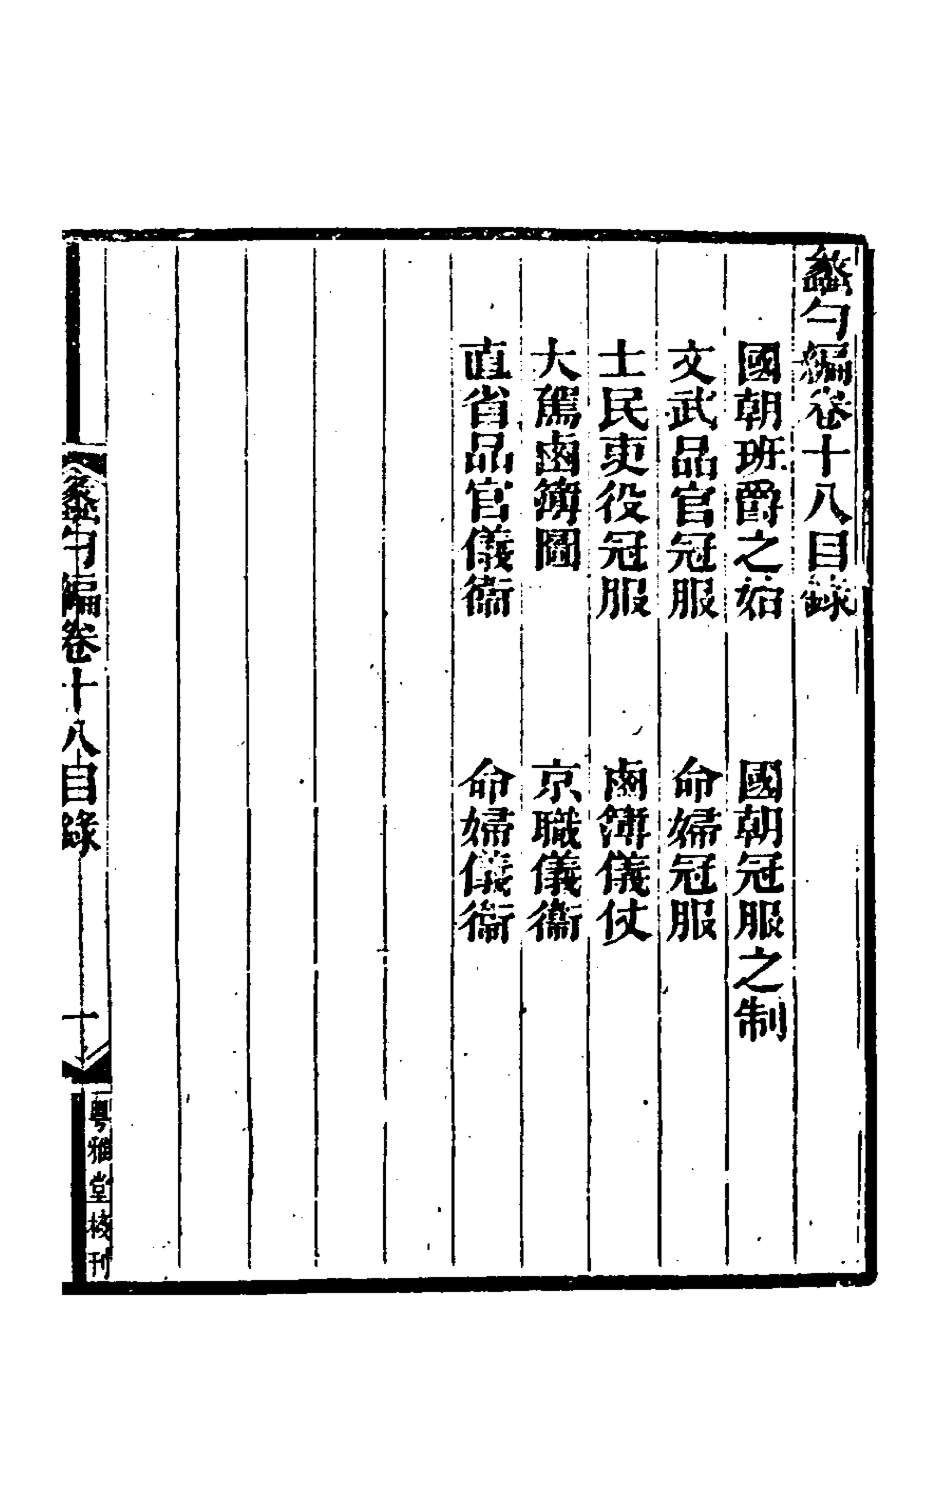 蠡勺編卷十八目錄
國朝班爵之始　國朝冠服之制
文武品官冠服　命婦冠服
士民吏役冠服　鹵簿儀仗
大駕鹵簿圖　京職儀衞
直省品官儀衞　命婦儀衞
蠡勺編卷十八目錄　一　粤雅堂校刊